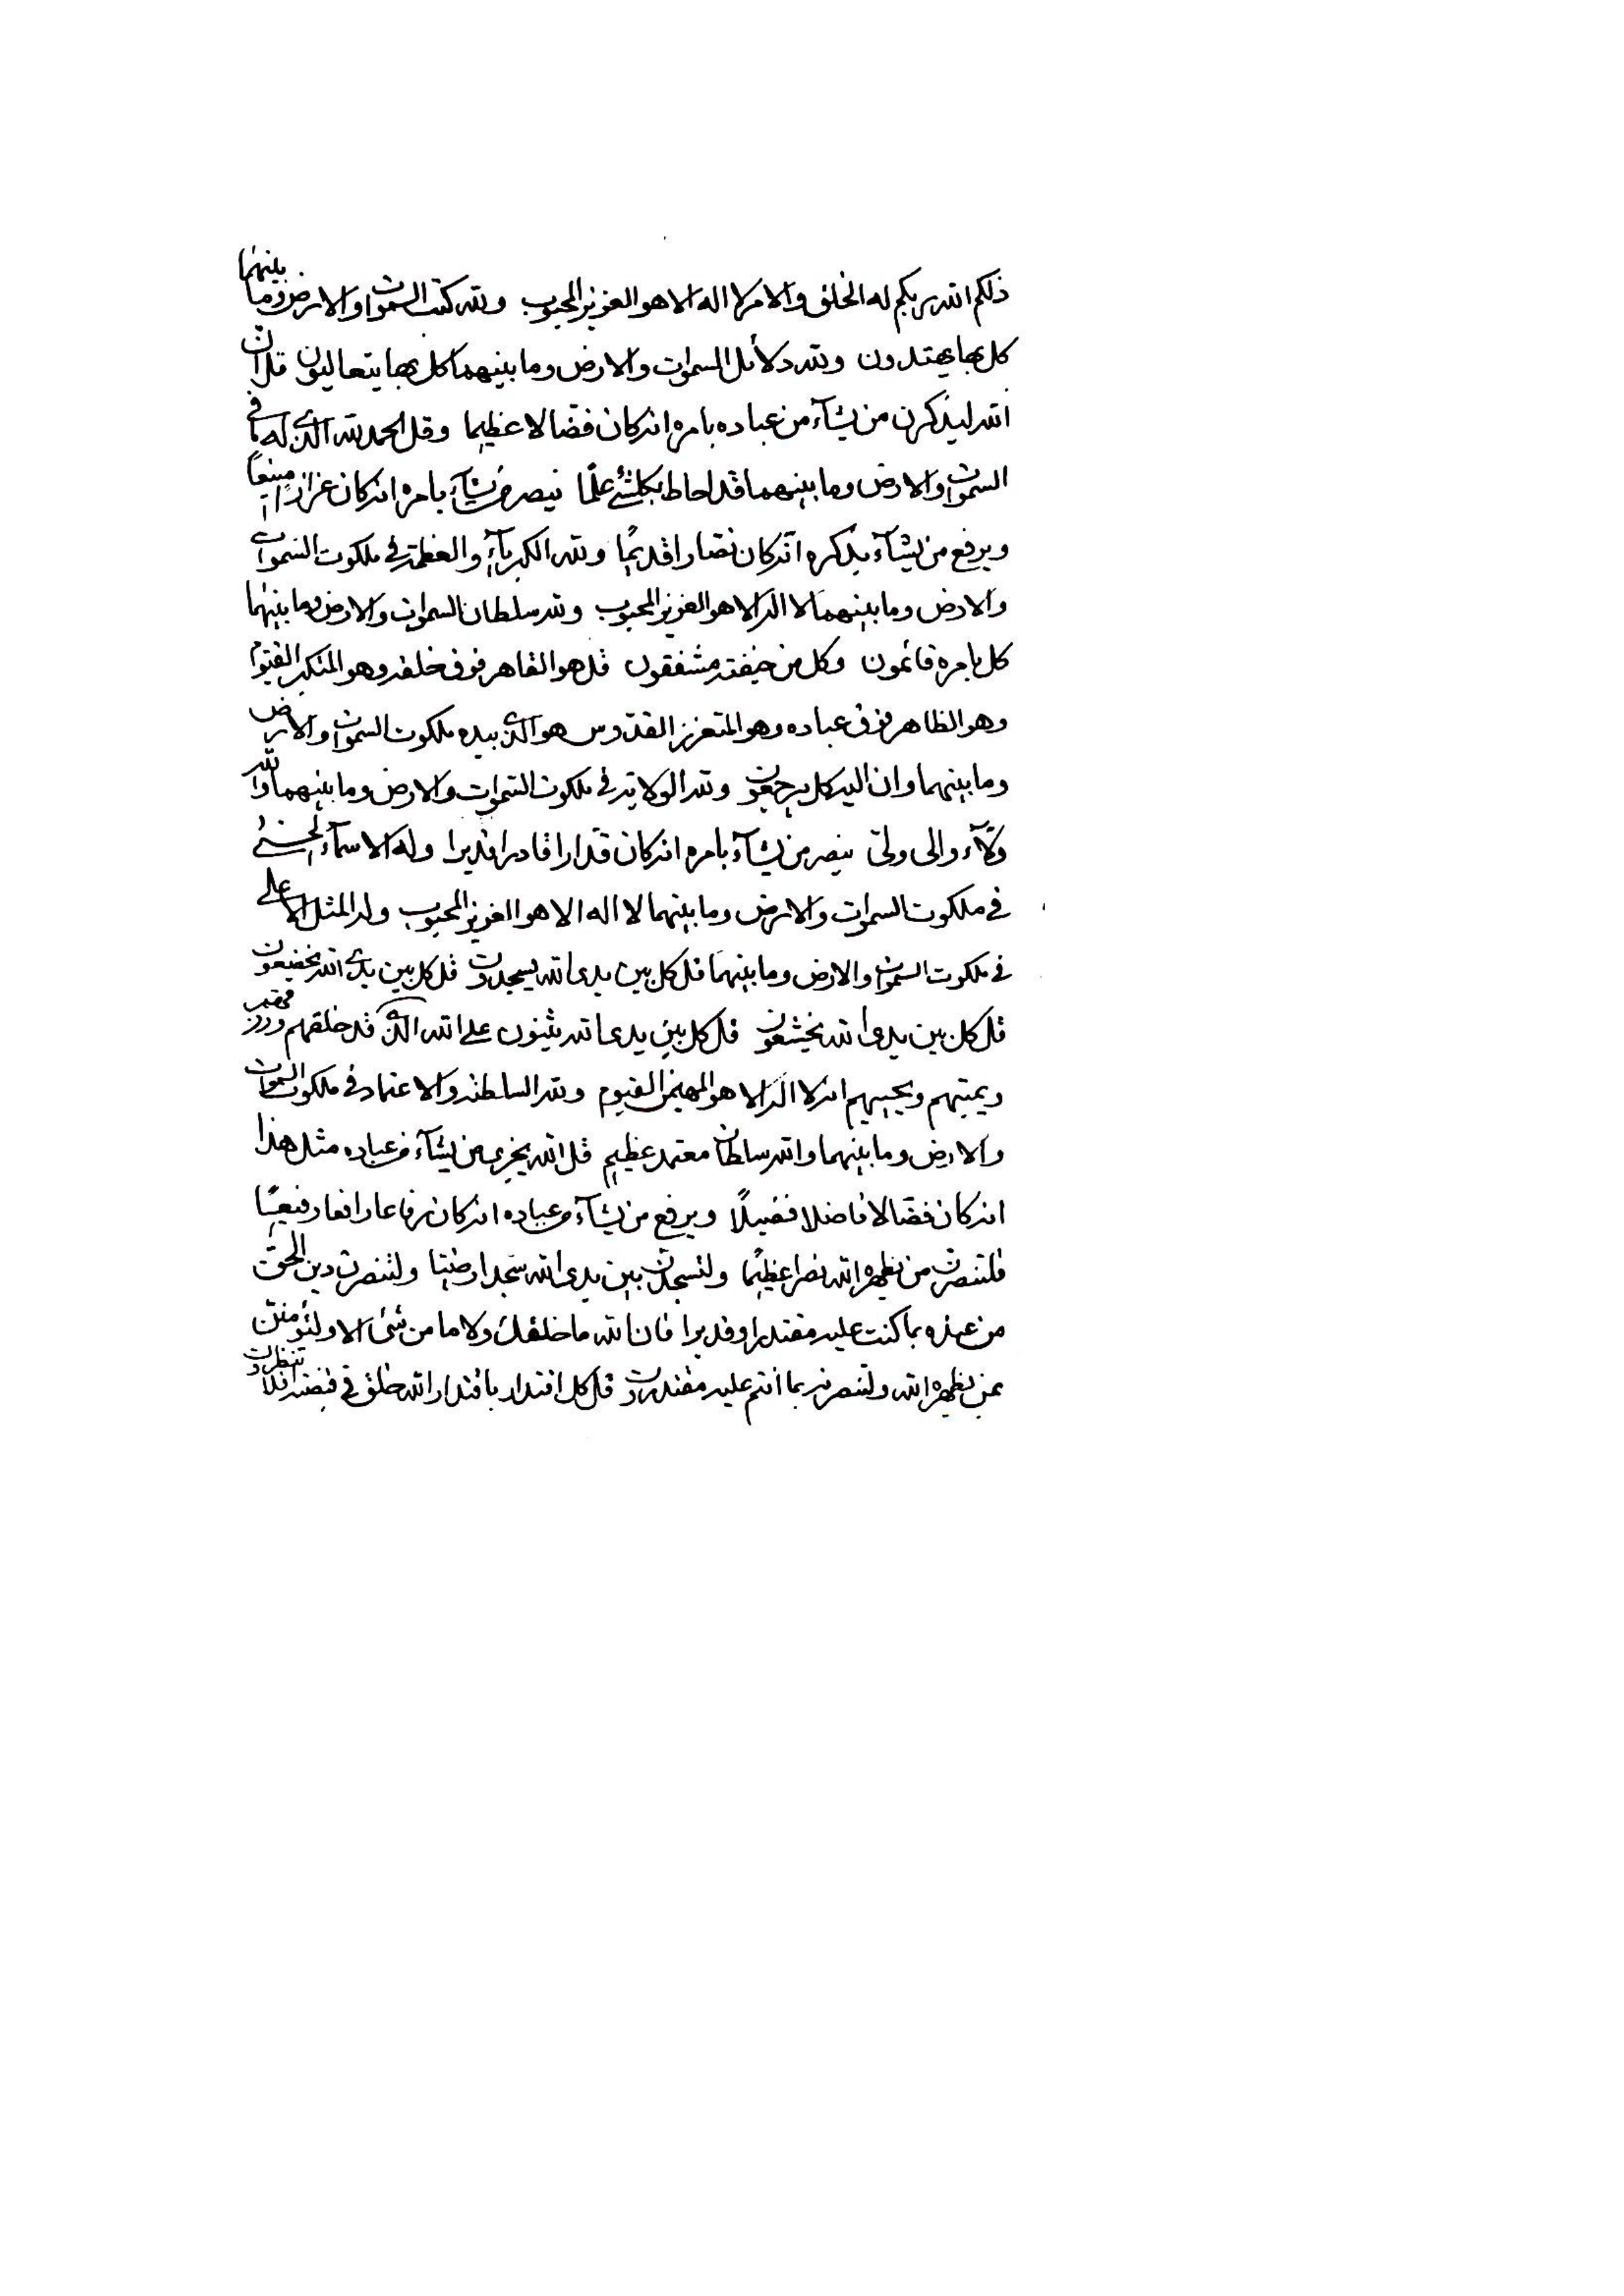 ذلكم الله ربكم له الخلق والامر لا اله الا هو العزيز المحبوب ولله كتب السموات والارض وما بينهما
كل بها يهتدون ولله دلائل السموات والارض وما بينهما كل بها يتعاليون قل ان
الله ليذكرن من يشآء من عباده بامره انه كان فضالا عظيما وقل الحمد لله الذي له ما في
السموات والارض وما بينهما قد احاط بكلشئ علمًا ينصر من يشآء بامره انه كان عزازا منيعًا
ويرفع من يشآء بذكره انه كان نصارا قديمًا ولله الكبريآء والعظمة في ملكوت السموات
والارض وما بينهما لا اله الا هو العزيز المحبوب ولله سلطان السموات والارض وما بينهما
كل بامره قائمون وكل من خيفته مشفقون قل هو القاهر فوق خلقه وهو المتكبر القيوم
وهو الظاهر فوق عباده وهو المتعزز القدوس هو الذي بيده ملكوت السموات والارض
وما بينهما وان اليه كل يرجعون ولله الولاية في ملكوت السموات والارض وما بينهما والله
ولآء والى ولى ينصر من يشآء بامره انه كان قدارا قادرا قديرا وله الاسمآء الحسنى
في ملكوت السموات والارض وما بينهما لا اله الا هو العزيز المحبوب وله المثل الاعلى
في ملكوت السموات والارض وما بينهما قل كل بين يدى الله يسجدون قل كل بين يدى الله يخضعون
قل كل بين يدى الله يخشعون قل كل بين يدى الله يثنون على الله الذي قد خلقهم ورزقهم
ويميتهم ويحييهم انه لا اله الا هو المهيمن القيوم ولله السلطنه والاعتماد في ملكوت السموات
والارض وما بينهما والله سلطان معتمد عظيم قل الله يجزى من يشآء من عباده مثل هذا
انه كان فضالا فاضلا فضيلًا ويرفع من يشآء من عباده انه كان رفاعا رافعا رفيعًا
فلتنصرن من يظهره الله نصرا عظيمًا ولتسجدن بين يدى الله سجدا رضيا ولتنصرن دين الحق
من عنده بما كنت عليه مقتدرا وقديرا فان الله ما خلقك ولا ما من شئ الا ولتؤمنن
بمن يظهره الله ولتنصرنه بما انتم عليه مقتدرون قل كل اقتدار باقتدار الله خلق في قبضته افلا تنظرون